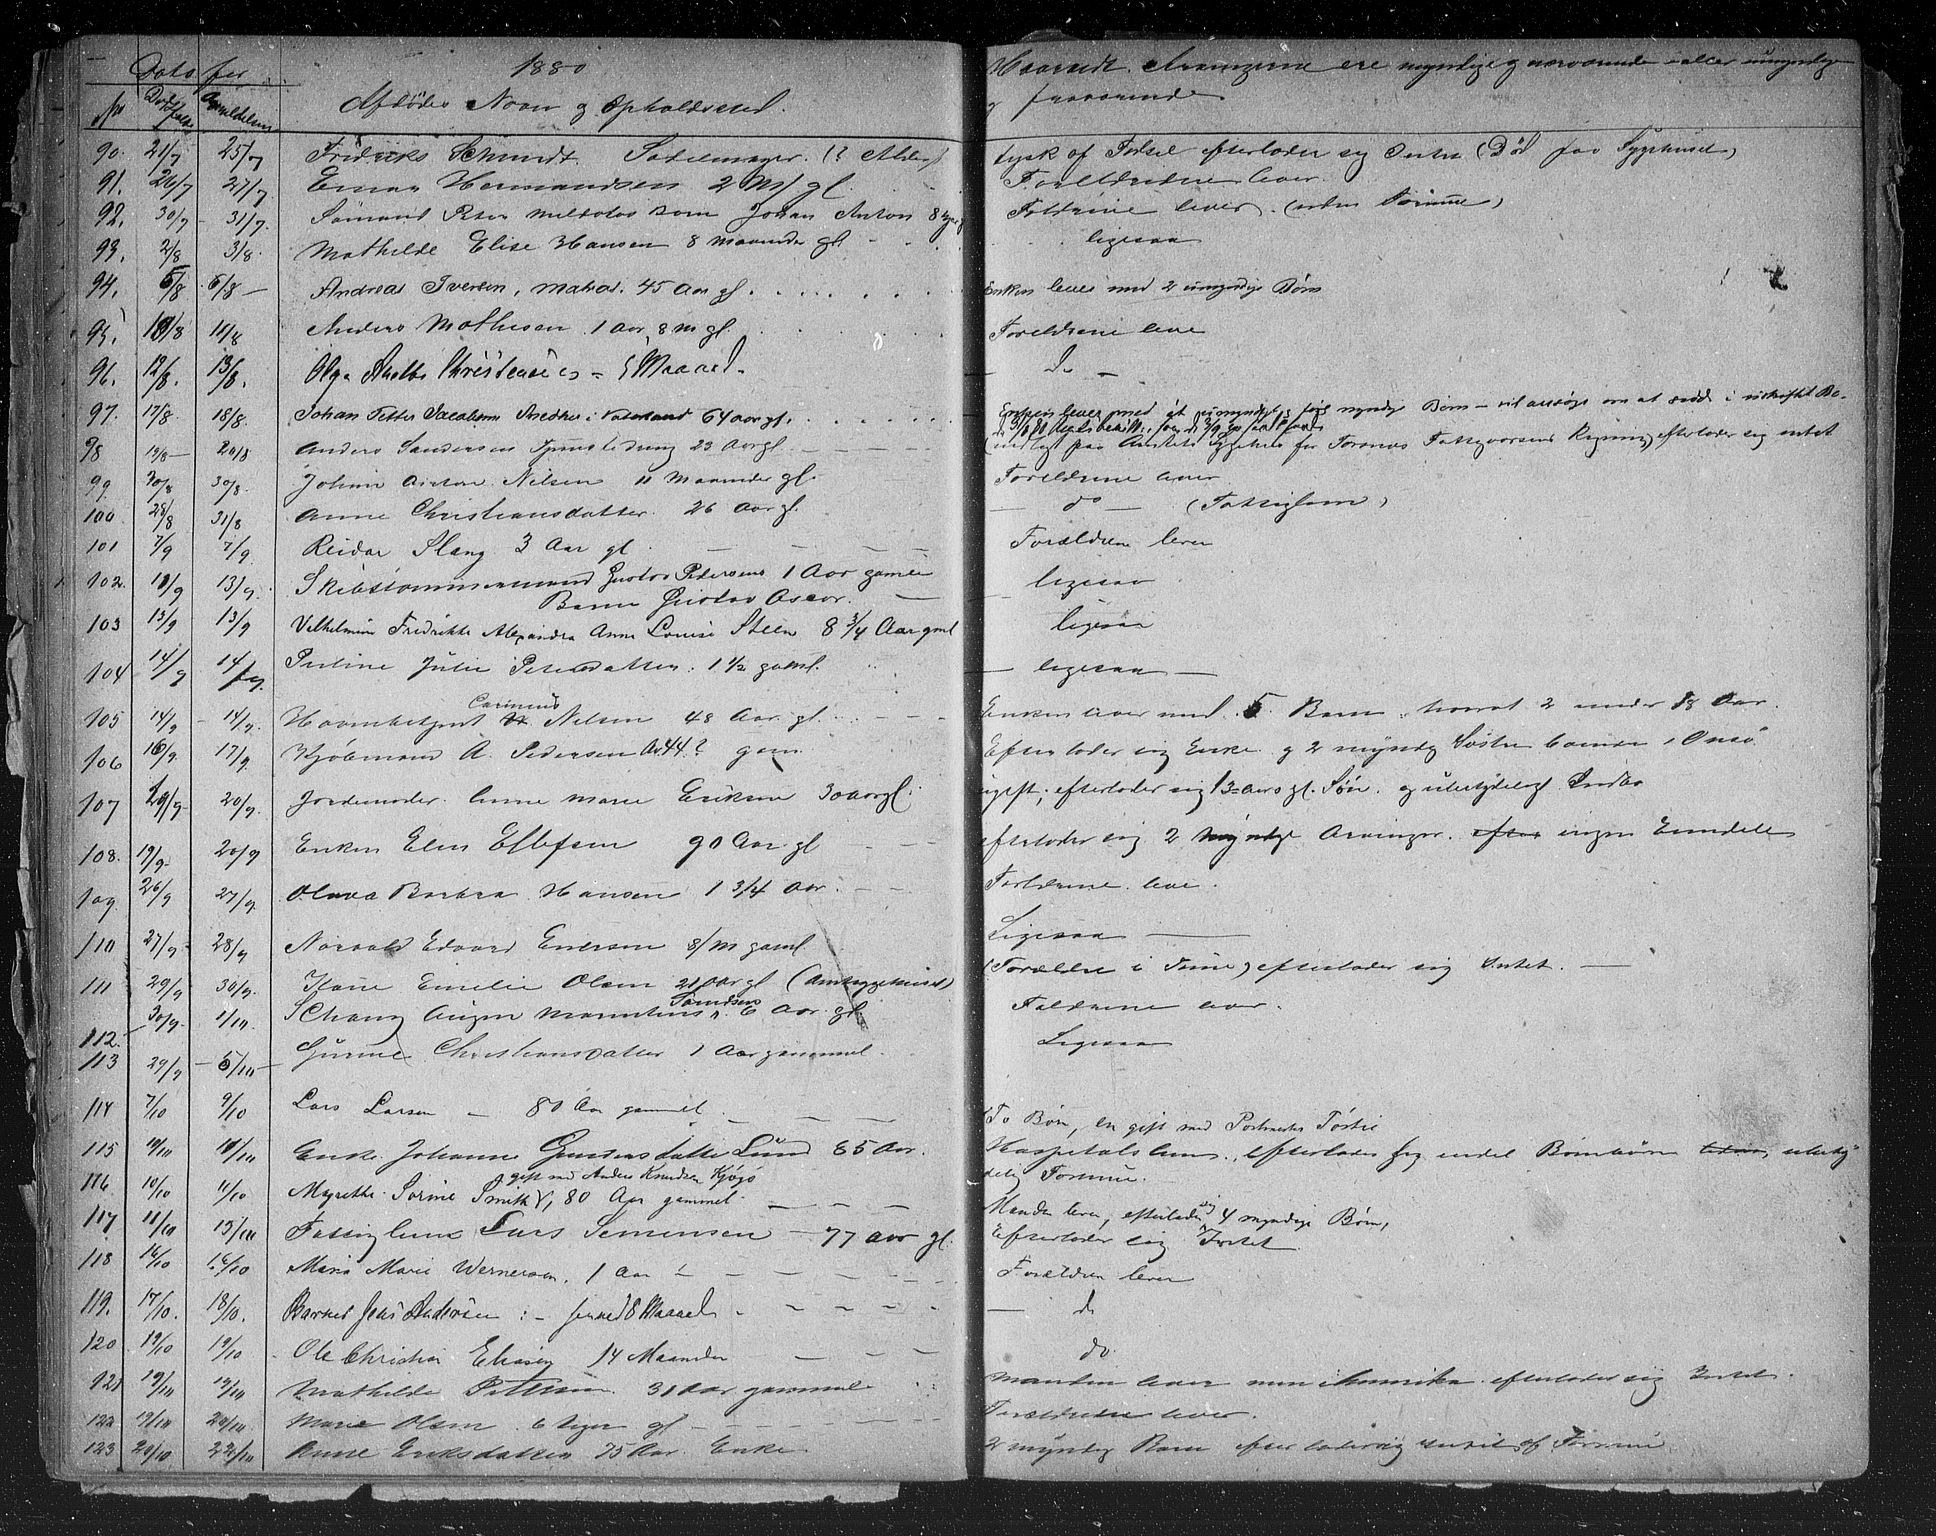 Dato for 1880
No Dødsfaldet Anmeldelsen Afdødes Navn og Opholdssted. Hvorvidt Arvingerne ere myndige og nærværende eller umyndige
og fraværende
90. 21/7 25/7 Fredriks Schmidt Sadelmager. (? Alder) tysk af Fødsel efterlader sig Intet (Død paa Sygehuset)
91. 26/7 27/7 Einar Hermandsen 2 M/ gl. Forældrene lever.
92. 30/7 31/7 Sømand Peter Barn Johan Anton 8 gl Forældrene lever. (uden Formue)
93. 2/8 3/8. Mathilde Elise Hansen 8 maaneder gl. ligesaa
94. 5/8 6/8 Andreas Iversen, matros. 45 Aar gl. Enken lever med 2 umyndige Børn
95. 10/8 11/8 Anders Mathisen 1 Aar 8 m gl. Forældrene lever
96. 12/8. 13/8. Olga Christensen - Maaned. do
97. 17/8. 18/8. Johan Petter Jacobsen Snedker i 64 aar gl. Enken lever med et umyndigt og myndige Børn - vil ansøge om at sidde i uskiftet Bo.
98 19/8 20/8 Anders Sandersen 23 Aar gl. paa Amtets Sygehus for Fattigvæsens Regning, efterlader sig intet
99 30/8 30/8. Johan Anton Nilsen 11 Maaneder gl. Forældrene lever
100 28/8 31/8 Anne Christiansdatter. 26 Aar gl. do (Fattiglem)
101 7/9 7/9. Reidar Slang 3 Aar gl. Forældrene lever
102. 11/9 13/9. Skibstømmermand Gustav Pedersens 1 Aar gamle ligesaa
Barn Gustav Oscar.
103 13/9 13/9 Vilhelmine Fredrikke Alexandra Anna Louise Steen 8 3/4 Aar gml ligesaa
104 14/9 14/9. Pauline Julie Petersdatter. 1 1/2 gaml. ligesaa
Carinius
105 14/9 14/9. Nilsen 48 Aar gl. Enken lever med 5 Børn, hvoraf 2 under 18 Aar.
106 16/9. 17/9. Kjøbmand A. Pedersen Aar 44? gam. Efterlader sig Enke og 2 myndig Søstre boende i Onsø
107 19/9 20/9. Jordemoder Anne Marie Eriksen 30 aar gl. ugift; efterlader sig 13 aars gl. Søn og ubetydeligt Indbo
108. 19/9. 20/9 Enken Elen Ellefsen 90 Aar gl efterlader sig 2 myndige Arvinger. efter ingen Eiendele
109. 26/9 27/9. Olava Barbra Hansen 1 3/4 Aar. Forældrene lever.
110 27/9 28/9 Norvald Edvard Enersen 8/m gaml Ligesaa
111 29/9 30/9. Emelie Olsen 21 Aar gl (Amtssygehuset) (Forældre i ) efterlader sig Intet.
112. 30/9. 1/10. August 6 Aar gl. Forældrene lever.
113 29/9 5/10 Gurine Christiansdatter 1 Aar gammel. Ligesaa
114 7/10 9/10 Lars Larsen 80 Aar gammel To Børn, en gift med
115 10/10 11/10 Enke Johanne Lund 85 Aar. Hospitalslem, efterlader sig endel Børnebørn ubety-
gift med Anders Knudsen Kjøgø delig Formue.
116 10/10 11/10 Myrethe Sorine Smith, 80 Aar gammel Manden lever, efterlader sig 4 myndige Børn,
117 11/10 15/10 Fattiglem Lars Simensen 77 aar gl. Efterlader sig Intet.
118 16/10 16/10 Mina Marie Wernersen. 1 Aar Forældrene lever
119. 17/10. 18/10. Barnet Jens Andersen: - 8 Maaned do
120 19/10 19/10 Ole Christian Eliasen 14 Maaneder do.
121 19/10 19/10 Mathilde Pettersen. 31 Aar gammel Manden lever men i Amerika. efterlader sig Intet.
122 19/10 20/10 Marie Olsen 6 Uger gl Forældrene lever.
123 20/10 22/10 Anne Eriksdatter 75 Aar. Enke 2 myndig Børn efterlader sig intet af Formue